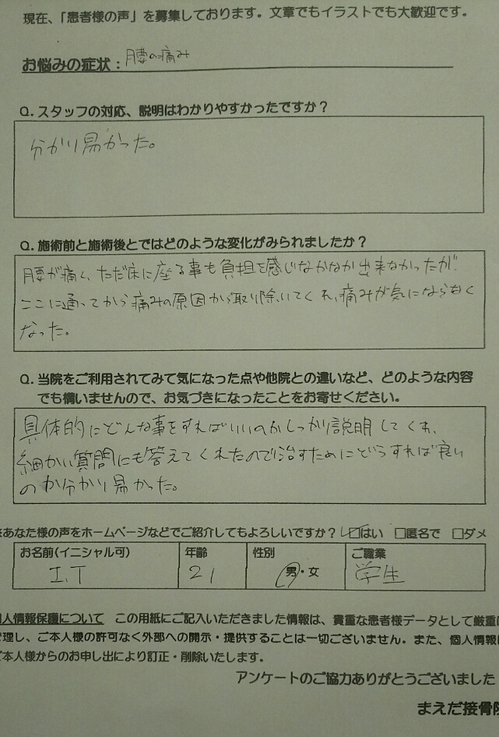 現在、「患者様の声」を募集しております。文章でもイラストでも大歓迎です。
お悩みの症状：腰の痛み
Q. スタッフの対応、説明はわかりやすかったですか？
分かり易かった。
Q. 施術前と施術後とではどのような変化がみられましたか？
腰が痛く、ただ床に座る事も負担を感じなかなか出来なかったが
ここに通ってから痛みの原因から取り除いてくれ、痛みが気にならなく
なった。
Q. 当院をご利用されてみて気になった点や他院との違いなど、どのような内容
でも構いませんので、お気づきになったことをお寄せください。
具体的にどんな事をすればいいのかしっかり説明してくれ、
細かい質問にも答えてくれたので治すためにどうすれば良い
のか分かり易かった。
あなた様の声をホームページなどでご紹介してもよろしいですか？ ☑はい □匿名で □ダメ
お名前(イニシャル可) 年齢 性別 ご職業
I.T 21 男・女 学生
個人情報保護について この用紙にご記入いただきました情報は、貴重な患者様データとして厳重に
管理し、ご本人様の許可なく外部への開示・提供することは一切ございません。また、個人情報は
ご本人様からのお申し出により訂正・削除いたします。
アンケートのご協力ありがとうございました
まえだ接骨院